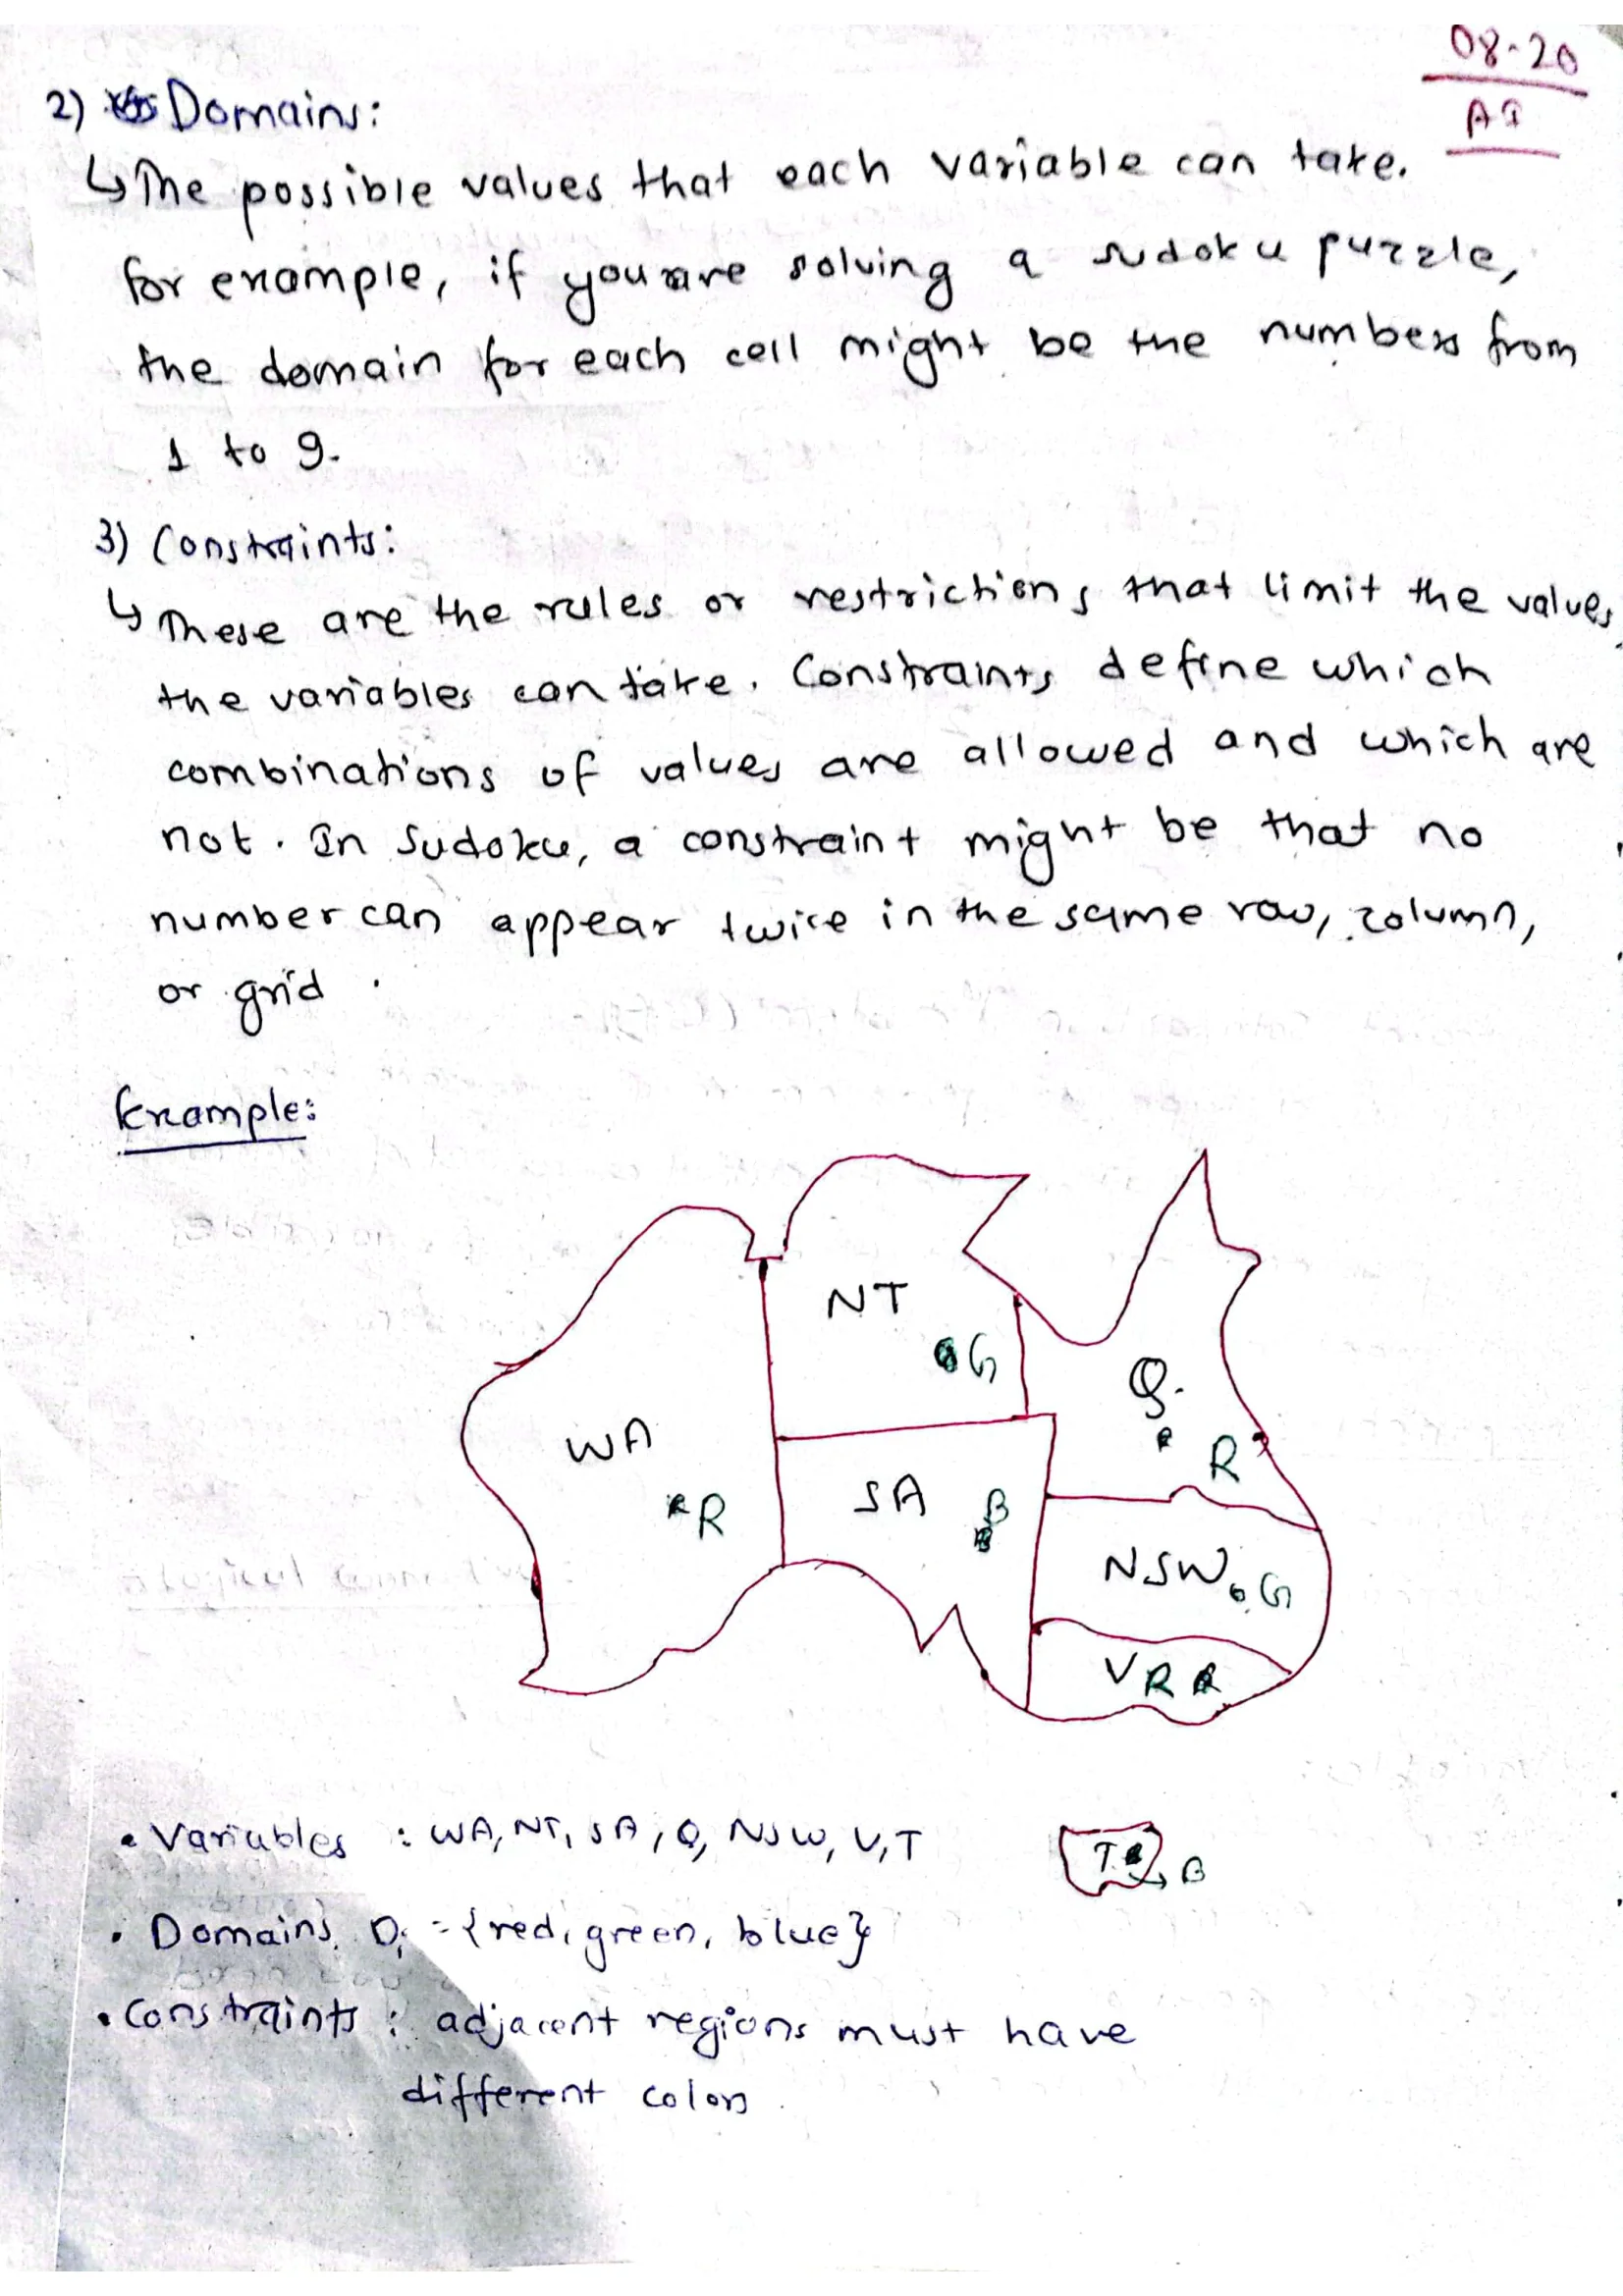 08-20
AI
2) Domains:
↳ The possible values that each variable can take.
for example, if you are solving a sudoku puzzle,
the domain for each cell might be the numbers from
1 to 9.
3) Constraints:
↳ These are the rules or restrictions that limit the values
the variables can take. Constraints define which
combinations of values are allowed and which are
not. In Sudoku, a constraint might be that no
number can appear twice in the same row, column,
or grid.
Example:
NT
G
Q
R
WA
R
SA
B
NSW G
V R R
• Variables : WA, NT, SA, Q, NSW, V, T
T → B
• Domains Di = {red, green, blue}
• Constraints : adjacent regions must have
different colors.